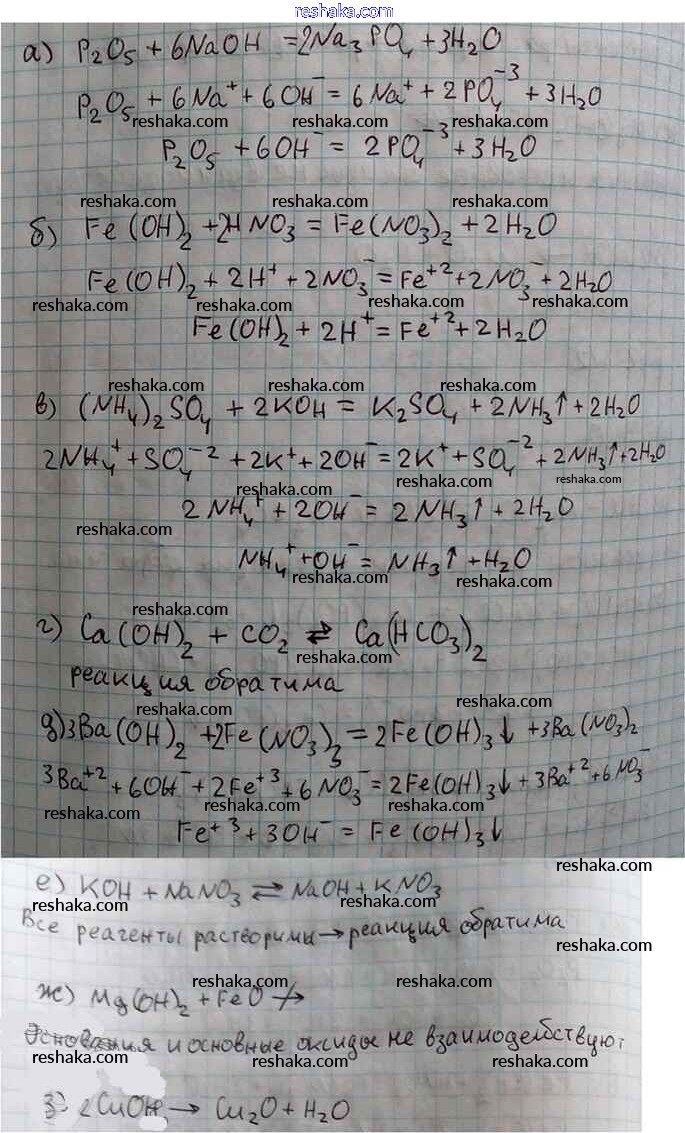 reshaka.com
а) P₂O₅ + 6NaOH = 2Na₃PO₄ + 3H₂O
P₂O₅ + 6Na⁺ + 6OH⁻ = 6Na⁺ + 2PO₄⁻³ + 3H₂O
reshaka.com reshaka.com reshaka.com
P₂O₅ + 6OH⁻ = 2PO₄⁻³ + 3H₂O
reshaka.com reshaka.com reshaka.com
б) Fe(OH)₂ + 2HNO₃ = Fe(NO₃)₂ + 2H₂O
reshaka.com reshaka.com
Fe(OH)₂ + 2H⁺ + 2NO₃⁻ = Fe⁺² + 2NO₃⁻ + 2H₂O
reshaka.com reshaka.com reshaka.com
Fe(OH)₂ + 2H⁺ = Fe⁺² + 2H₂O
reshaka.com reshaka.com reshaka.com
в) (NH₄)₂SO₄ + 2KOH = K₂SO₄ + 2NH₃↑ + 2H₂O
reshaka.com reshaka.com
2NH₄⁺ + SO₄⁻² + 2K⁺ + 2OH⁻ = 2K⁺ + SO₄⁻² + 2NH₃↑ + 2H₂O
reshaka.com reshaka.com reshaka.com
2NH₄⁺ + 2OH⁻ = 2NH₃↑ + 2H₂O
reshaka.com reshaka.com
NH₄⁺ + OH⁻ = NH₃↑ + H₂O
reshaka.com reshaka.com
reshaka.com reshaka.com
г) Ca(OH)₂ + CO₂ ⇄ Ca(HCO₃)₂
reshaka.com
реакция обратима
reshaka.com reshaka.com reshaka.com
д) 3Ba(OH)₂ + 2Fe(NO₃)₃ = 2Fe(OH)₃↓ + 3Ba(NO₃)₂
reshaka.com reshaka.com
3Ba⁺² + 6OH⁻ + 2Fe⁺³ + 6NO₃⁻ = 2Fe(OH)₃↓ + 3Ba⁺² + 6NO₃⁻
reshaka.com reshaka.com reshaka.com
Fe⁺³ + 3OH⁻ = Fe(OH)₃↓
reshaka.com reshaka.com
е) KOH + NaNO₃ ⇄ NaOH + KNO₃
reshaka.com reshaka.com
Все реагенты растворимы → реакция обратима
reshaka.com reshaka.com reshaka.com
ж) Mg(OH)₂ + FeO ↛
reshaka.com reshaka.com
Основания и основные оксиды не взаимодействуют
reshaka.com reshaka.com reshaka.com
з) 2CuOH → Cu₂O + H₂O
reshaka.com reshaka.com
reshaka.com